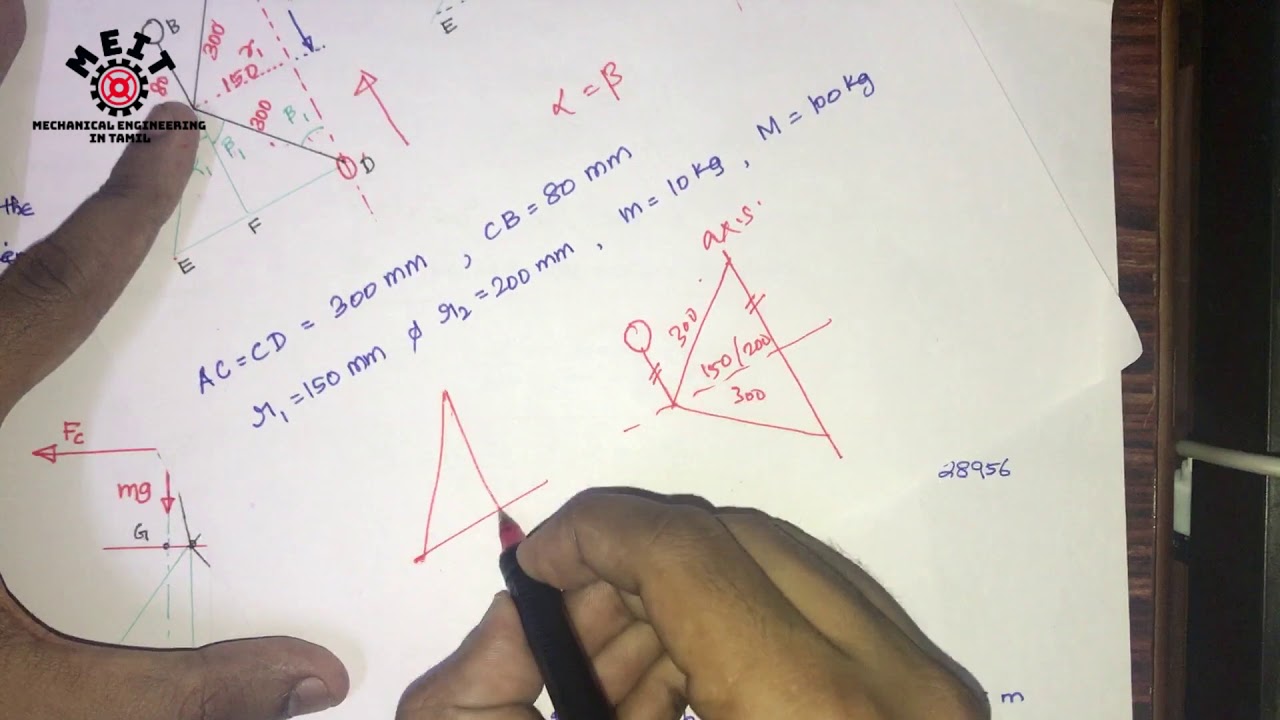 B
E
300
r₁
150
80
MEIT
MECHANICAL ENGINEERING
IN TAMIL
300
β₁
β₁
D
F
E
the
α = β
AC = CD = 300 mm , CB = 80 mm
r₁ = 150 mm & r₂ = 200 mm , m = 10 kg , M = 100 kg
axis.
300
150/200
300
Fc
mg
G
28956
m